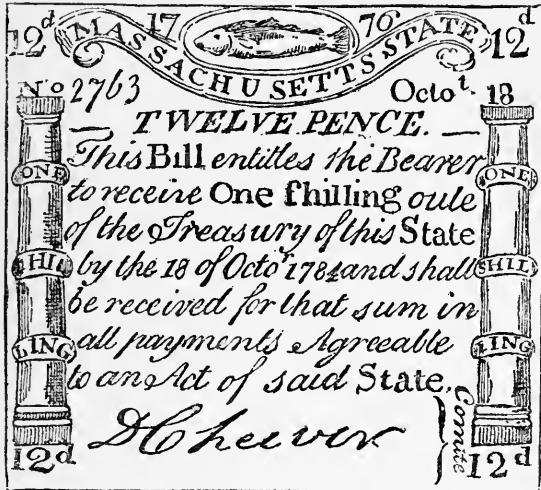 12d 17 76 12d
MASSACHUSETTS STATE
No 2763 Octot. 18
TWELVE PENCE.
This Bill entitles the Bearer
to receive One ſhilling oute
of the Treasury of this State
by the 18 of Octor 1784 and shall
be received for that sum in
all payments Agreeable
to an Act of said State.
DCheever
Comite
ONE
SHIL
LING
12d
ONE
SHILL
LING
12d